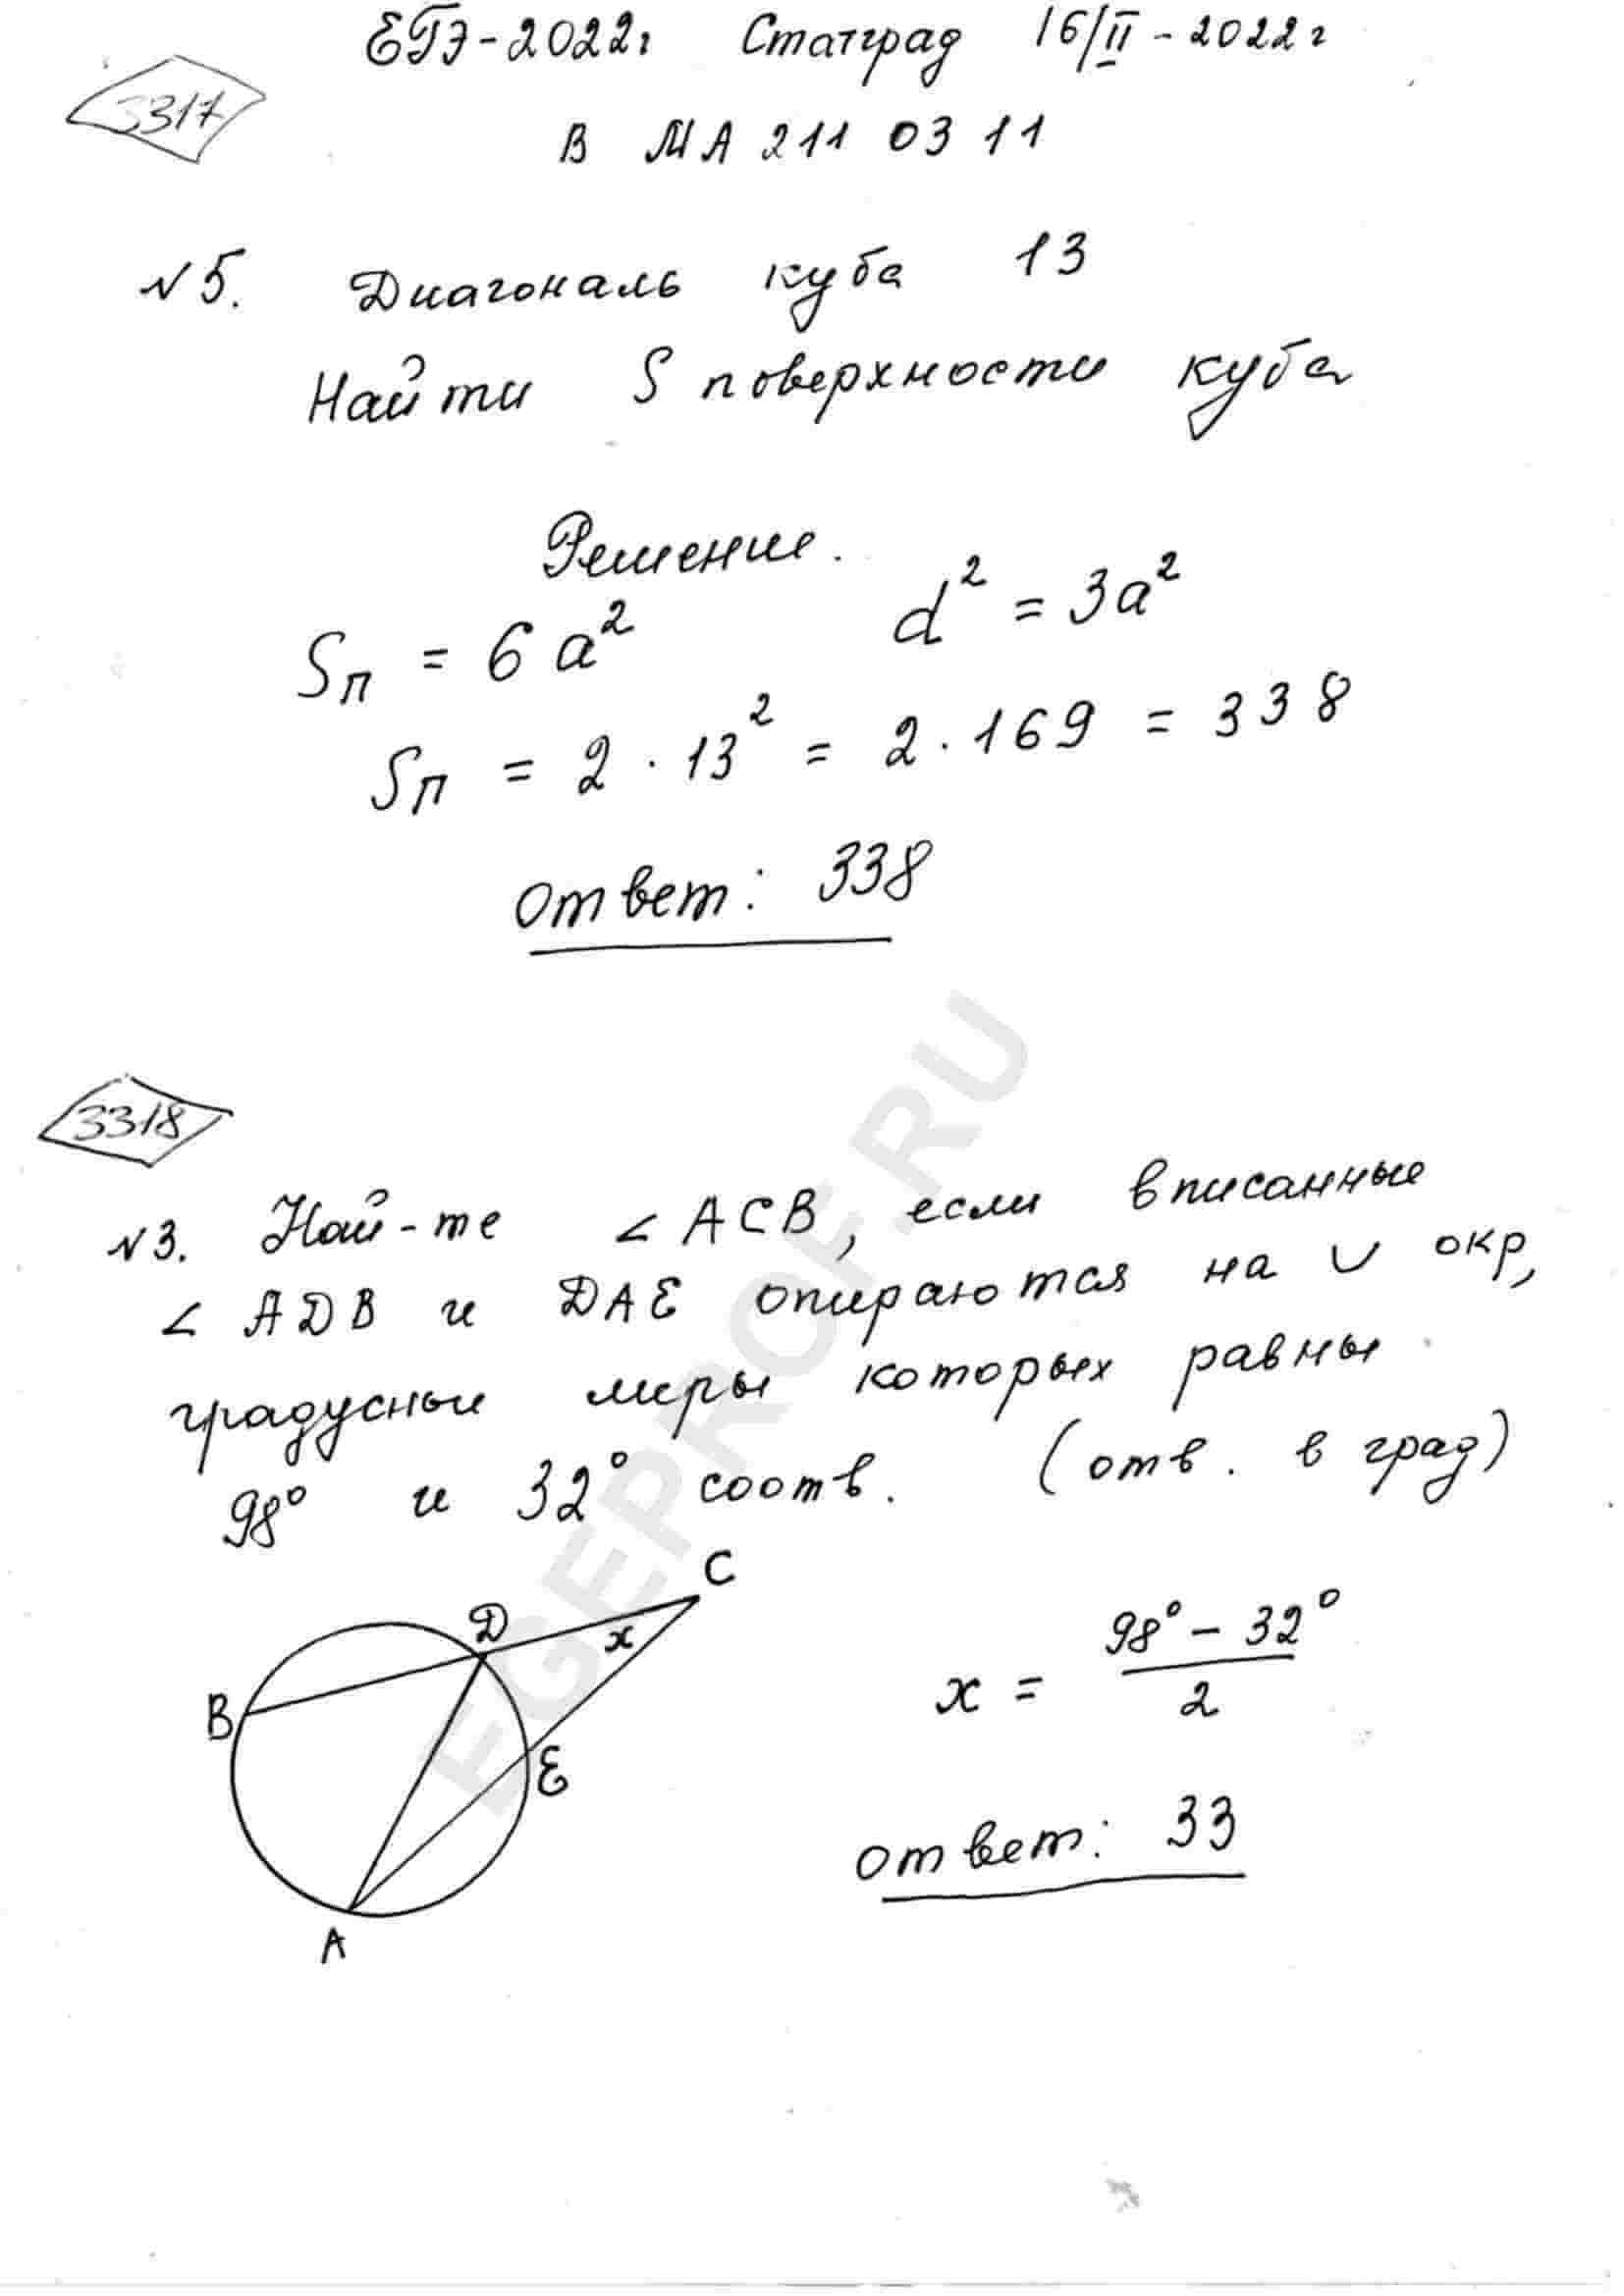 ЕГЭ-2022г Статград 16/II-2022г
3317
В МА 211 03 11
№5. Диагональ куба 13
Найти S поверхности куба
Решение.
Sп = 6a² d² = 3a²
Sп = 2 · 13² = 2 · 169 = 338
Ответ: 338
3318
№3. Най-те ∠ ACB, если вписанные
∠ ADB и DAE опираются на ∪ окр,
градусные меры которых равны
98° и 32° соотв. (отв. в град)
C
D
x
B
E
A
x = (98° - 32°)/2
Ответ: 33
EGEPROF.RU